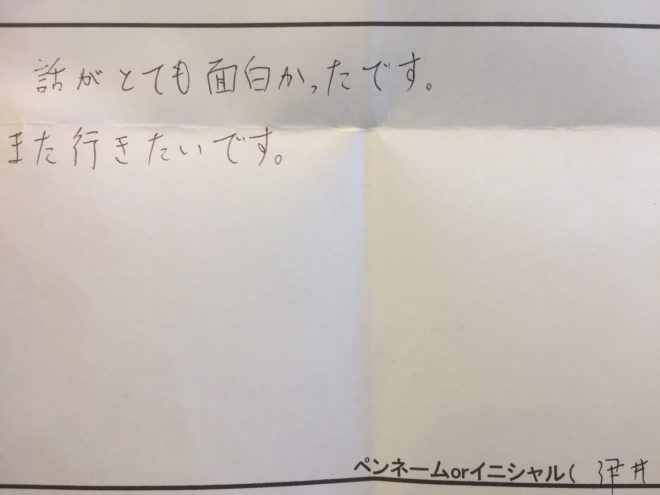 話がとても面白かったです。
また行きたいです。
ペンネームorイニシャル(